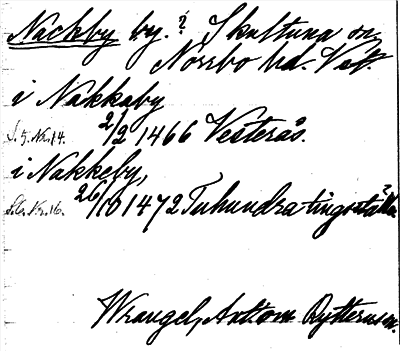 Nackby by.? Skultuna sn,
Norrbo hd. Vstl.
i Nakkaby
S. 5. Nr. 14. 2/2 1466 Vesterås.
i Nakkeby,
S. 6. Nr. 16. 26/10 1472 Tuhundra tingsställe?
Wrangel, Anton Rytterns sn.